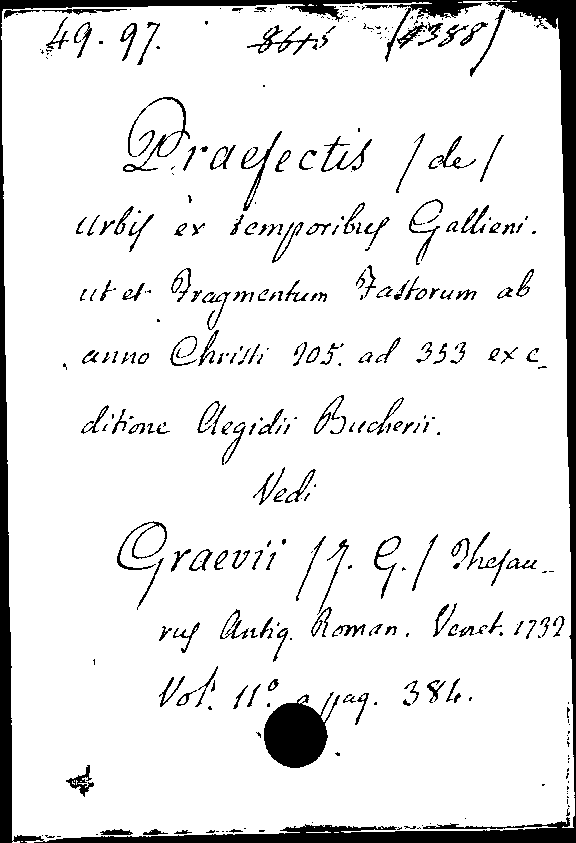 49. 97. 8615 (4388)
Praefectis / de /
urbis ex temporibus Gallieni.
ut et Fragmentum Fastorum ab
anno Christi 205. ad 353 ex e_
ditione Aegidii Bucherii.
Vedi
Graevii / J. G. / Thesau_
rus Antiq. Roman. Venet. 1732
Vol. 11º a pag. 384.